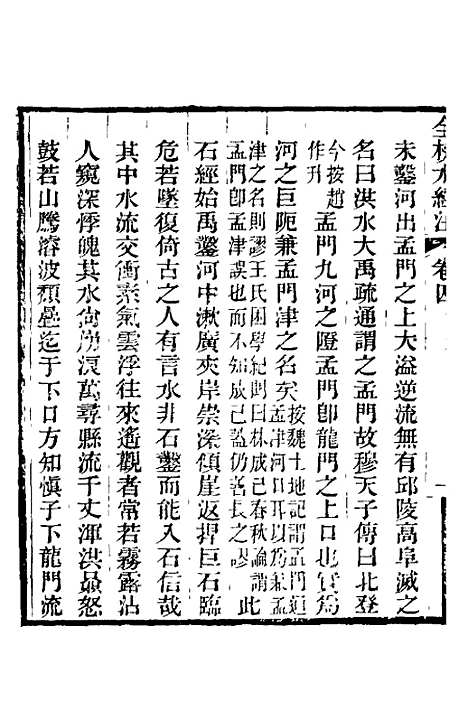 全校水經注 卷四
未鑿河出孟門之上大溢逆流無有邱陵高阜滅之
名曰洪水大禹疏通謂之孟門故穆天子傳曰北登
今按趙作升孟門九河之隥孟門卽龍門之上口也實爲
河之巨阨兼孟門津之名矣按魏土地記謂孟門通孟津河口耳以爲兼孟
津之名則謬王氏困學紀聞曰林成已春秋論謂孟門卽孟津誤也而不知成已蓋仍善長之謬此
石經始禹鑿河中漱廣夾岸崇深傾崖返捍巨石臨
危若墜復倚古之人有言水非石鑿而能入石信哉
其中水流交衝素氣雲浮往來遙觀者常若霧露沾
人窺深悸魄其水尙崩浪萬尋縣流千丈渾洪贔怒
鼓若山騰濬波頹疊迄于下口方知慎子下龍門流